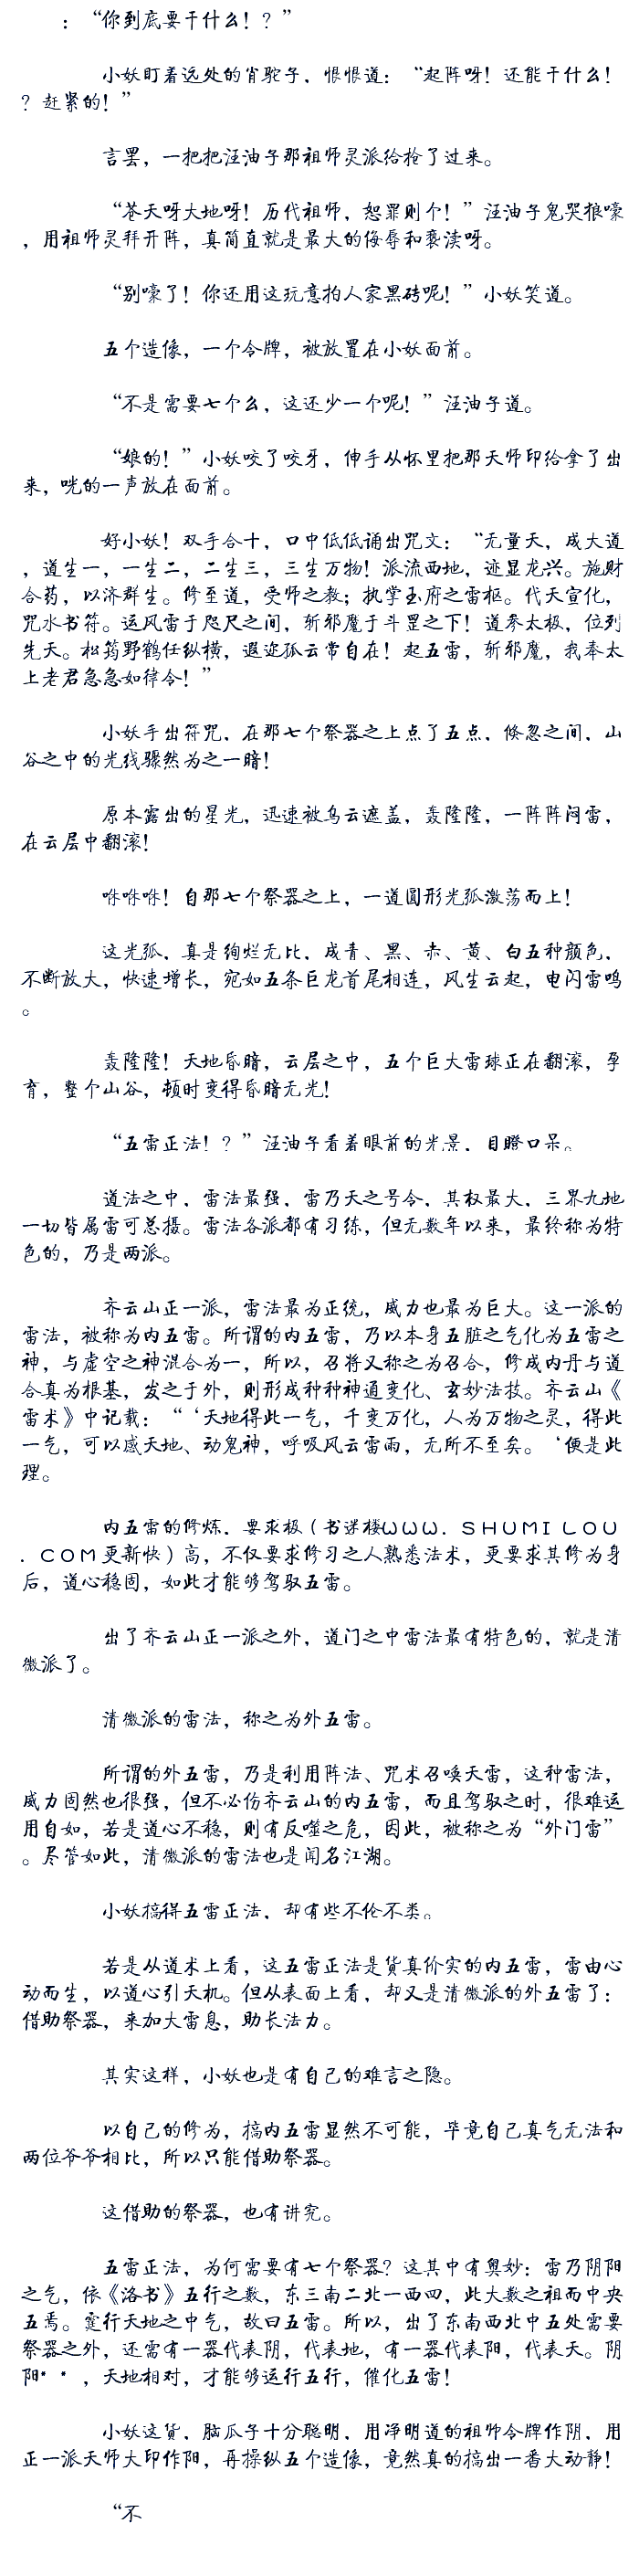 ：“你到底要干什么！？”
小妖盯着远处的肖驼子，恨恨道：“起阵呀！还能干什么！
？赶紧的！”
言罢，一把把汪油子那祖师灵派给抢了过来。
“苍天呀大地呀！历代祖师，恕罪则个！”汪油子鬼哭狼嚎
，用祖师灵拜开阵，真简直就是最大的侮辱和亵渎呀。
“别嚎了！你还用这玩意拍人家黑砖呢！”小妖笑道。
五个造像，一个令牌，被放置在小妖面前。
“不是需要七个么，这还少一个呢！”汪油子道。
“娘的！”小妖咬了咬牙，伸手从怀里把那天师印给拿了出
来，咣的一声放在面前。
好小妖！双手合十，口中低低诵出咒文：“无量天，成大道
，道生一，一生二，二生三，三生万物！派流西地，迹显龙兴。施财
合药，以济群生。修至道，受师之教；执掌玉府之雷枢。代天宣化，
咒水书符。运风雷于咫尺之间，斩邪魔于斗罡之下！道参太极，位列
先天。松筠野鹤任纵横，遐迩孤云常自在！起五雷，斩邪魔，我奉太
上老君急急如律令！”
小妖手出符咒，在那七个祭器之上点了五点，倏忽之间，山
谷之中的光线骤然为之一暗！
原本露出的星光，迅速被乌云遮盖，轰隆隆，一阵阵闷雷，
在云层中翻滚！
咻咻咻！自那七个祭器之上，一道圆形光弧激荡而上！
这光弧，真是绚烂无比，成青、黑、赤、黄、白五种颜色，
不断放大，快速增长，宛如五条巨龙首尾相连，风生云起，电闪雷鸣
。
轰隆隆！天地昏暗，云层之中，五个巨大雷球正在翻滚，孕
育，整个山谷，顿时变得昏暗无光！
“五雷正法！？”汪油子看着眼前的光景，目瞪口呆。
道法之中，雷法最强，雷乃天之号令，其权最大，三界九地
一切皆属雷可总摄。雷法各派都有习练，但无数年以来，最终称为特
色的，乃是两派。
齐云山正一派，雷法最为正统，威力也最为巨大。这一派的
雷法，被称为内五雷。所谓的内五雷，乃以本身五脏之气化为五雷之
神，与虚空之神混合为一，所以，召将又称之为召合，修成内丹与道
合真为根基，发之于外，则形成种种神通变化、玄妙法技。齐云山《
雷术》中记载：“‘天地得此一气，千变万化，人为万物之灵，得此
一气，可以感天地、动鬼神，呼吸风云雷雨，无所不至矣。‘便是此
理。
内五雷的修炼，要求极（书迷楼ＷＷＷ．ＳＨＵＭＩＬＯＵ
．ＣＯＭ更新快）高，不仅要求修习之人熟悉法术，更要求其修为身
后，道心稳固，如此才能够驾驭五雷。
出了齐云山正一派之外，道门之中雷法最有特色的，就是清
微派了。
清微派的雷法，称之为外五雷。
所谓的外五雷，乃是利用阵法、咒术召唤天雷，这种雷法，
威力固然也很强，但不必伤齐云山的内五雷，而且驾驭之时，很难运
用自如，若是道心不稳，则有反噬之危，因此，被称之为“外门雷”
。尽管如此，清微派的雷法也是闻名江湖。
小妖搞得五雷正法，却有些不伦不类。
若是从道术上看，这五雷正法是货真价实的内五雷，雷由心
动而生，以道心引天机。但从表面上看，却又是清微派的外五雷了：
借助祭器，来加大雷息，助长法力。
其实这样，小妖也是有自己的难言之隐。
以自己的修为，搞内五雷显然不可能，毕竟自己真气无法和
两位爷爷相比，所以只能借助祭器。
这借助的祭器，也有讲究。
五雷正法，为何需要有七个祭器？这其中有奥妙：雷乃阴阳
之气，依《洛书》五行之数，东三南二北一西四，此大数之祖而中央
五焉。霆行天地之中气，故曰五雷。所以，出了东南西北中五处需要
祭器之外，还需有一器代表阴，代表地，有一器代表阳，代表天。阴
阳**，天地相对，才能够运行五行，催化五雷！
小妖这货，脑瓜子十分聪明，用净明道的祖师令牌作阴，用
正一派天师大印作阳，再操纵五个造像，竟然真的搞出一番大动静！
“不